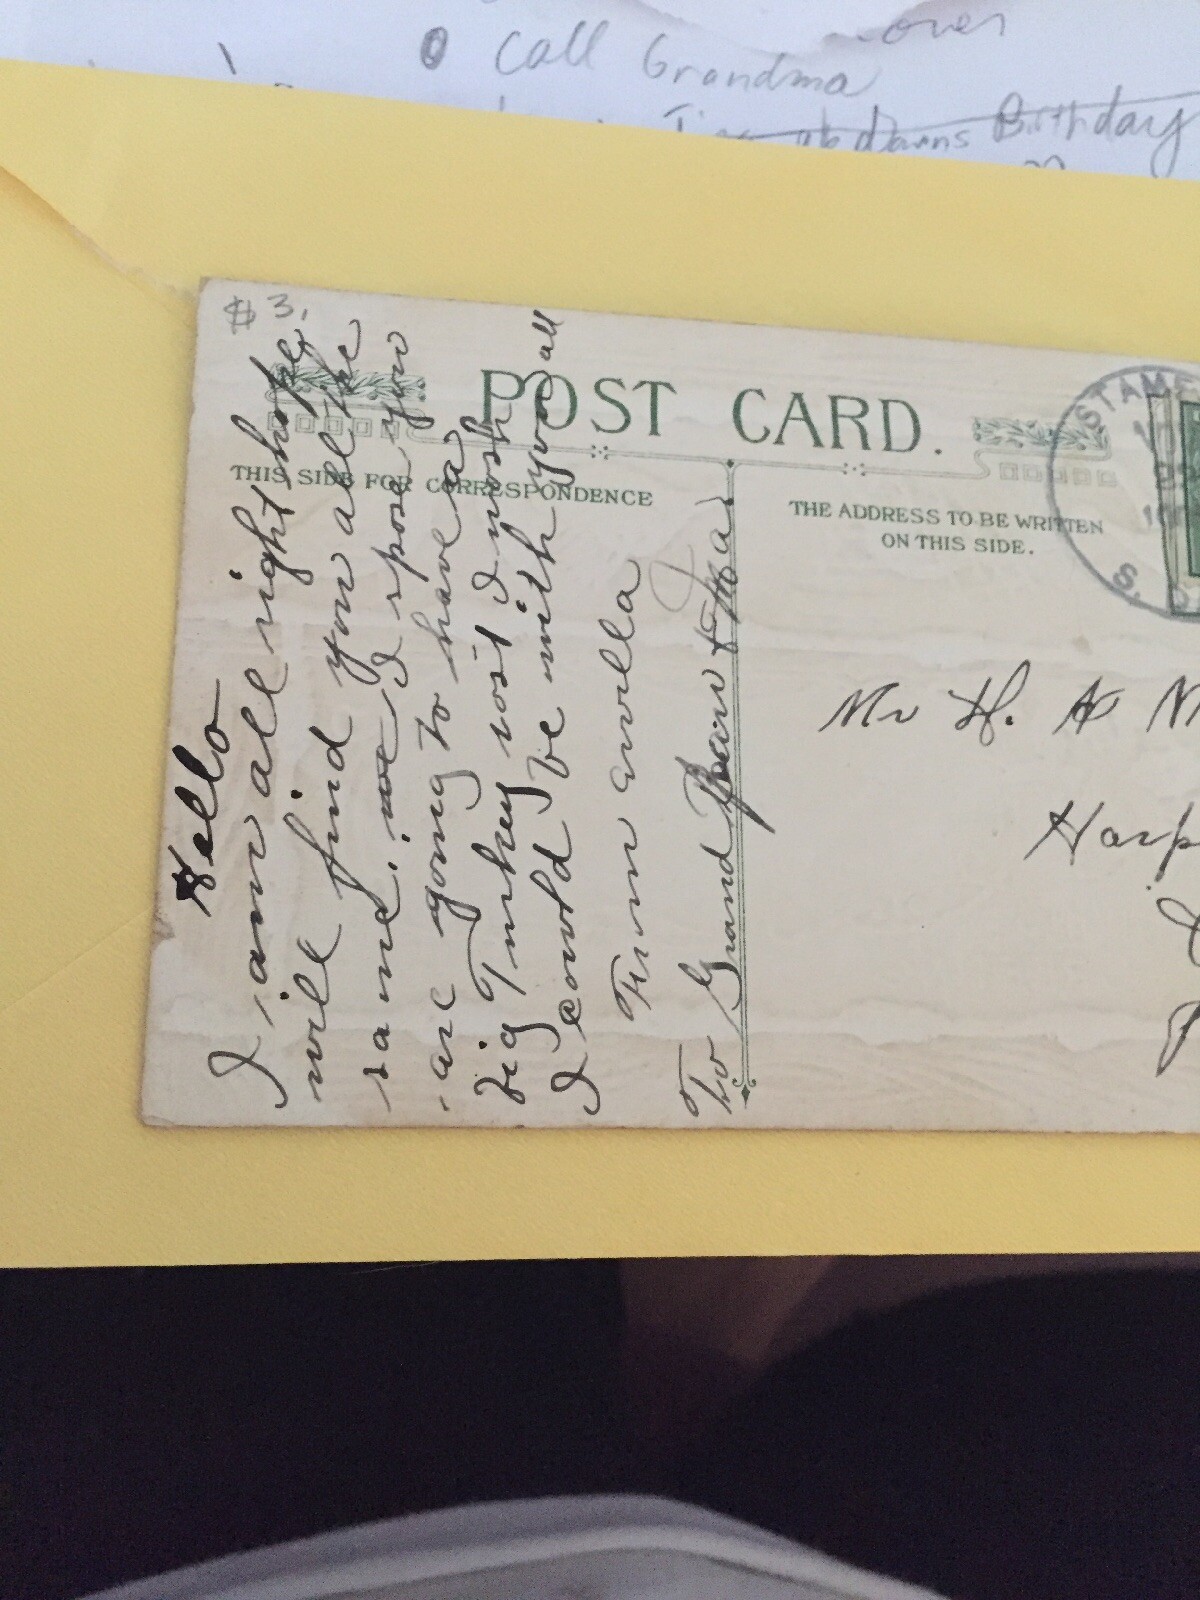 over
Call Grandma
Birthday
$3.
POST CARD.
THIS SIDE FOR CORRESPONDENCE
THE ADDRESS TO BE WRITTEN
ON THIS SIDE.
Hello
I am all right hope
will find you all the
same. I spose you
are going to have a
big Turkey I wish
I could be with you all
From
To Grand
Mr H. A
Harp
STAM
S.